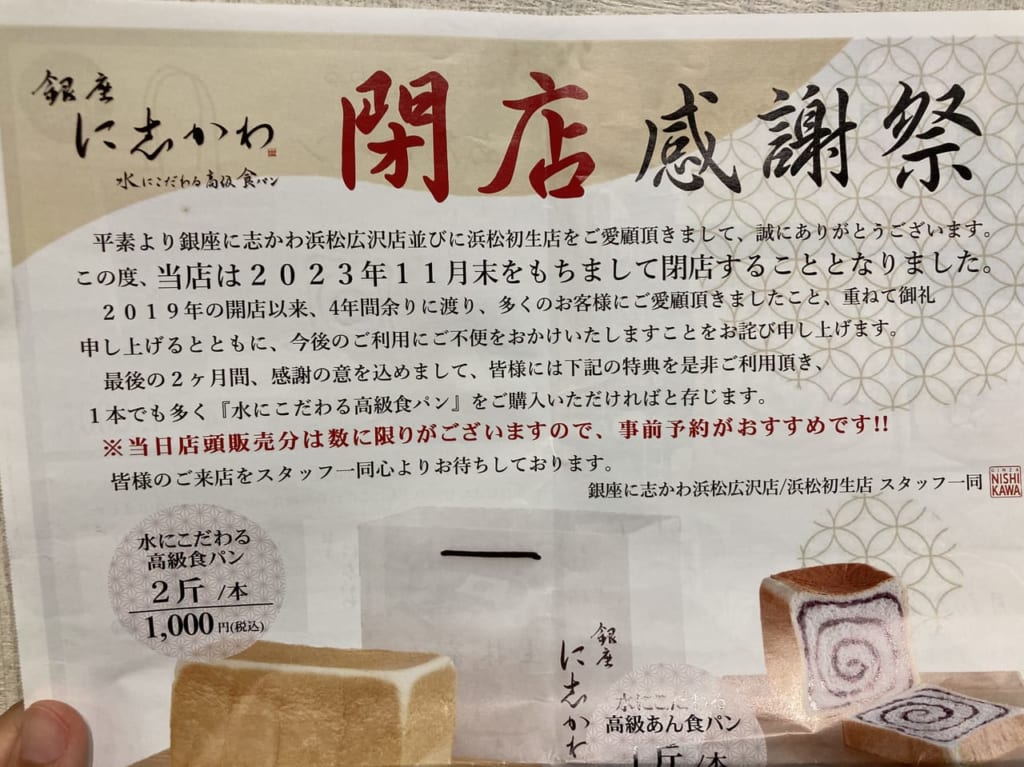 銀座
に志かわ
水にこだわる高級食パン
閉店感謝祭
平素より銀座に志かわ浜松広沢店並びに浜松初生店をご愛顧頂きまして、誠にありがとうございます。
この度、当店は2023年11月末をもちまして閉店することとなりました。
2019年の開店以来、4年間余りに渡り、多くのお客様にご愛顧頂きましたこと、重ねて御礼
申し上げるとともに、今後のご利用にご不便をおかけいたしますことをお詫び申し上げます。
最後の2ヶ月間、感謝の意を込めまして、皆様には下記の特典を是非ご利用頂き、
1本でも多く『水にこだわる高級食パン』をご購入いただければと存じます。
※当日店頭販売分は数に限りがございますので、事前予約がおすすめです!!
皆様のご来店をスタッフ一同心よりお待ちしております。
銀座に志かわ浜松広沢店/浜松初生店 スタッフ一同
GINZA
NISHI
KAWA
水にこだわる
高級食パン
2斤 /本
1,000円(税込)
銀座
に志かわ
水にこだわる
高級あん食パン
1斤 /本